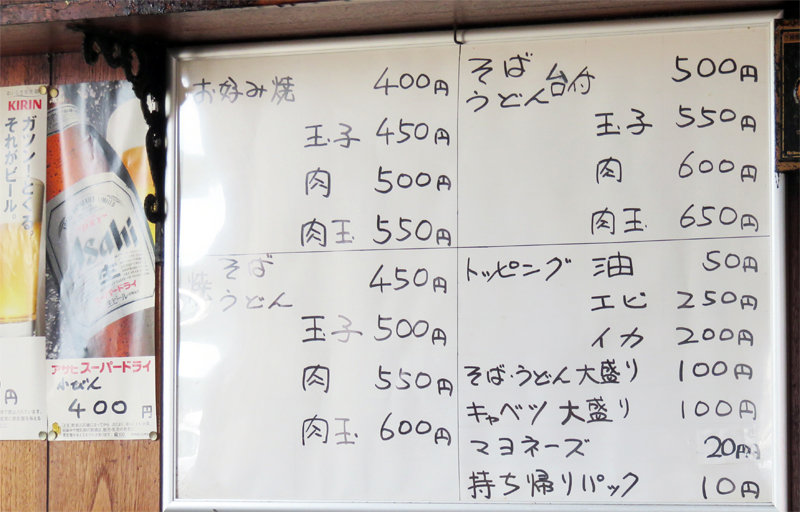 KIRIN
ガツン!とくる、
それがビール。
Asahi
アサヒスーパードライ
小びん
400円
お好み焼 400円
玉子 450円
肉 500円
肉玉 550円
焼そば
うどん 450円
玉子 500円
肉 550円
肉玉 600円
そば
うどん 台付 500円
玉子 550円
肉 600円
肉玉 650円
トッピング 油 50円
エビ 250円
イカ 200円
そば・うどん大盛り 100円
キャベツ大盛り 100円
マヨネーズ 20円
持ち帰りパック 10円